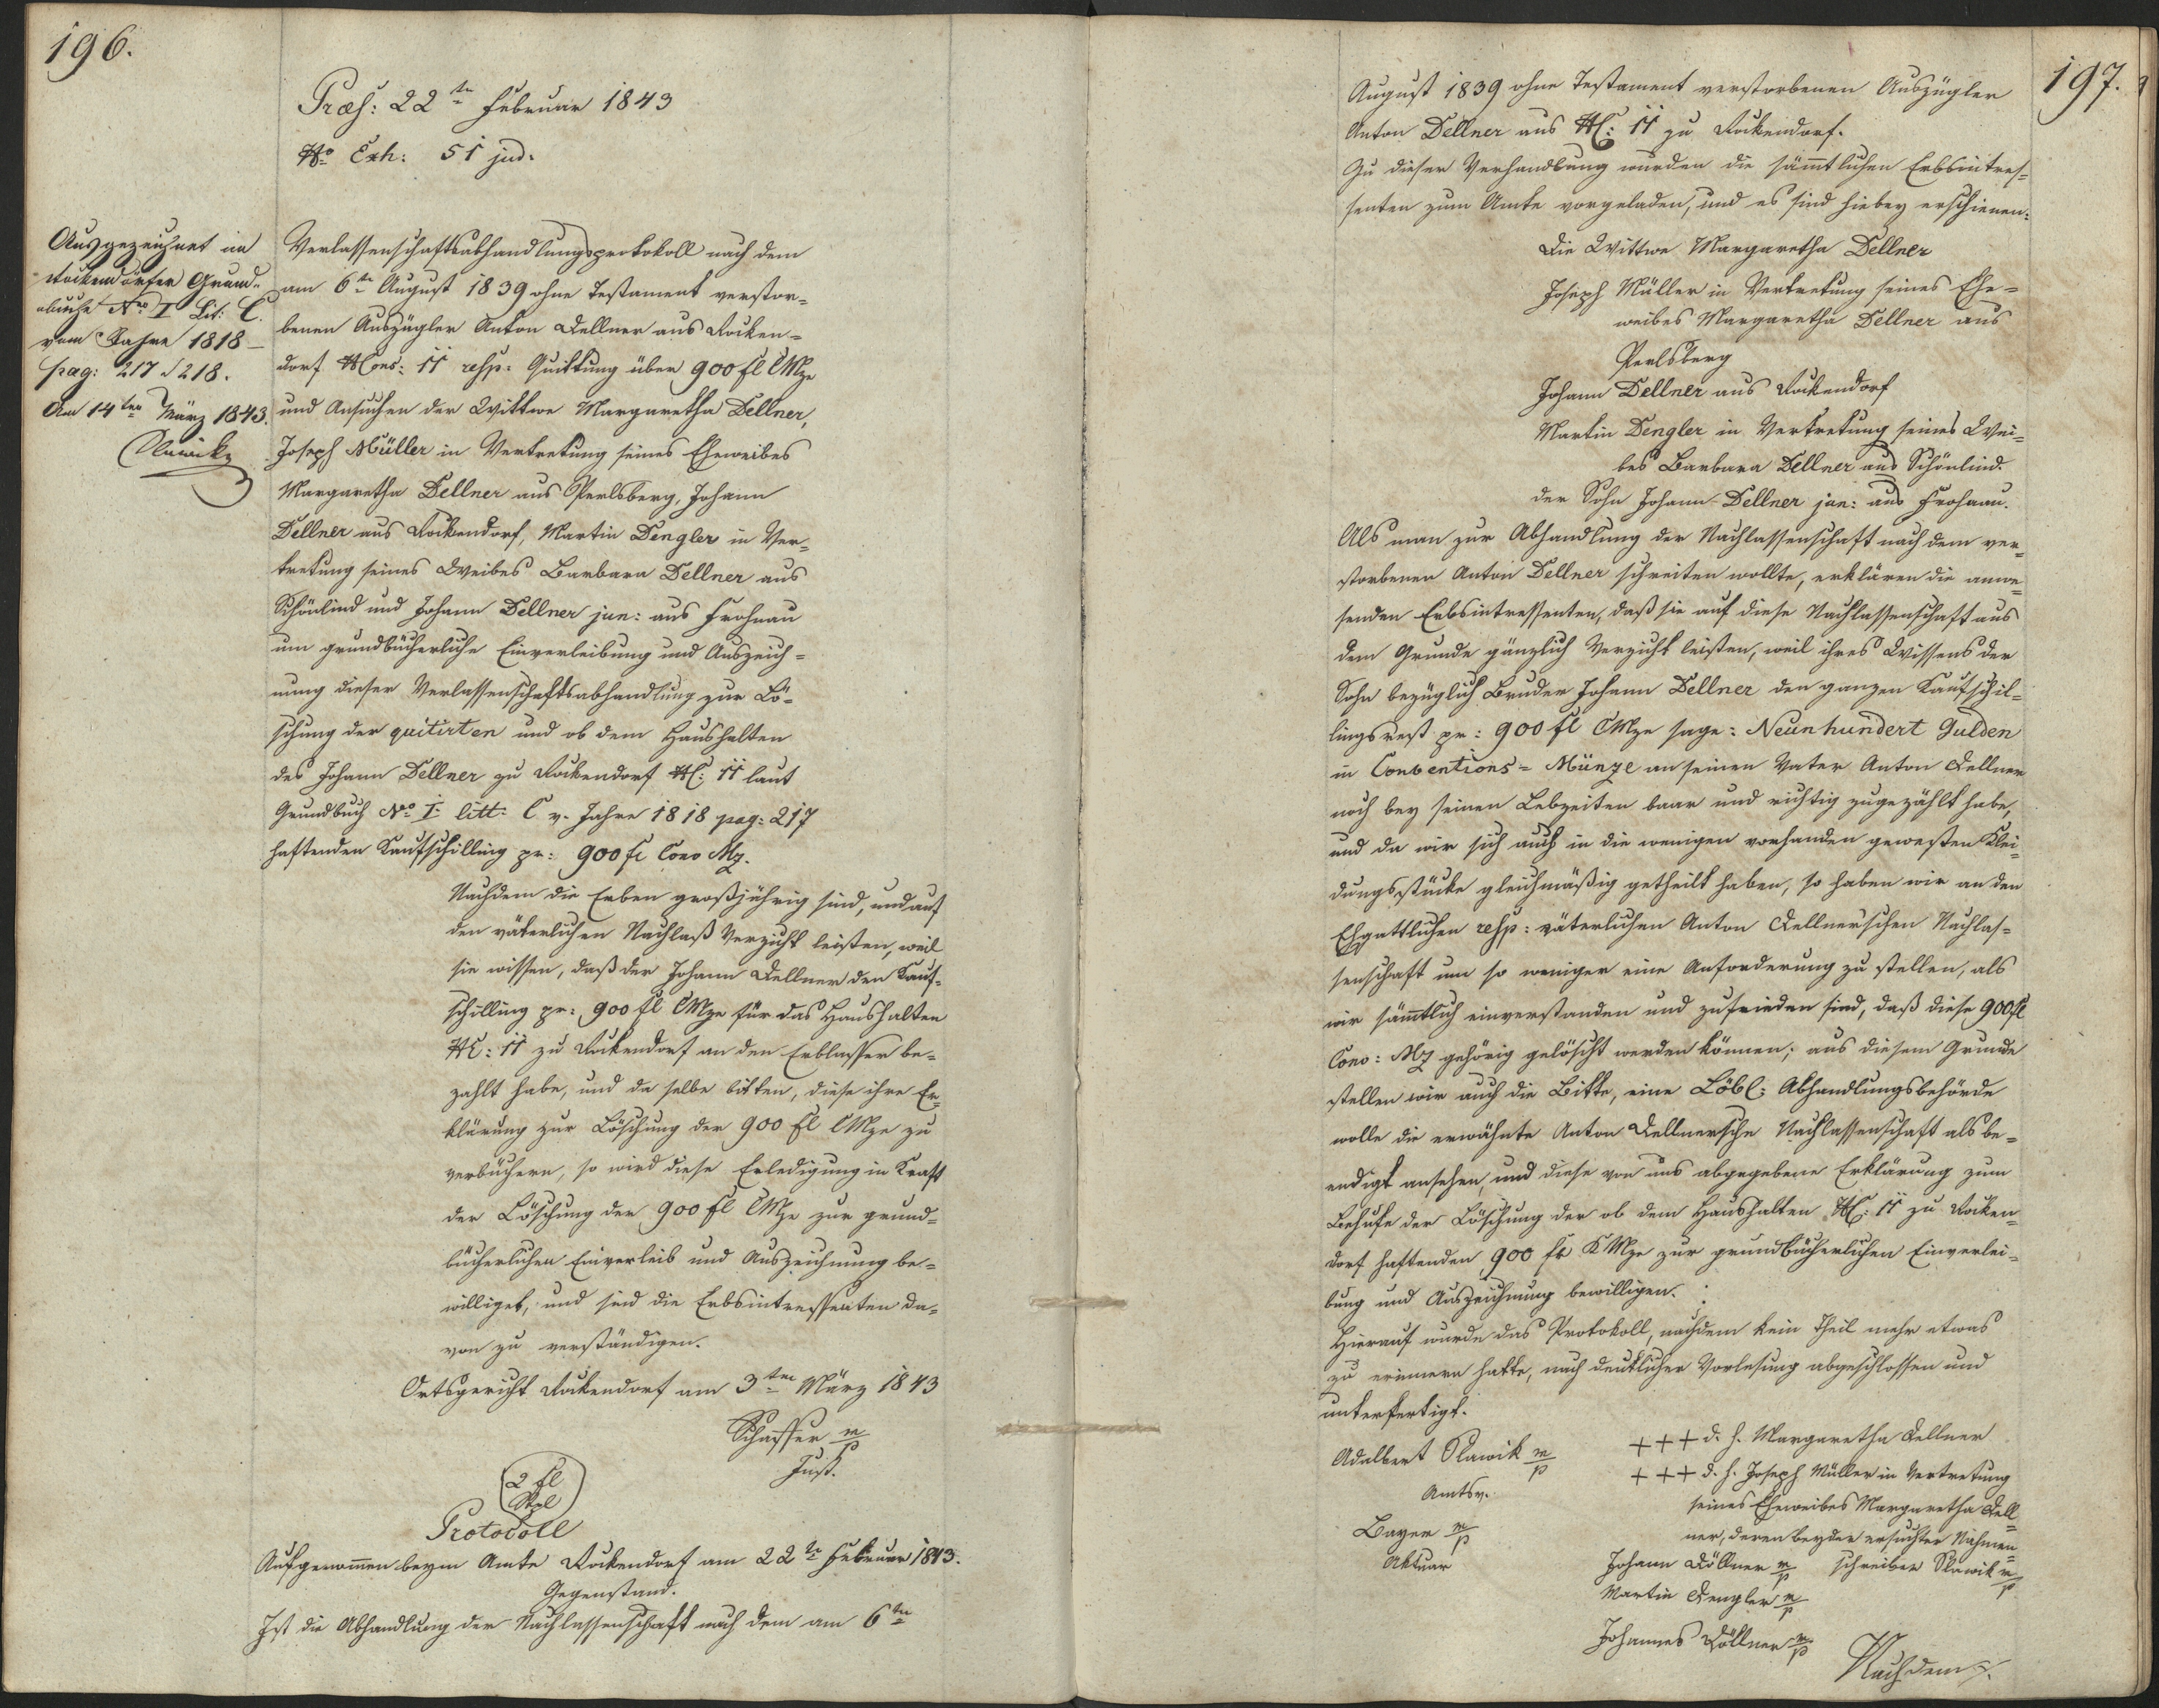 196.
Præs: 22ten Februar 1843
No Exh: 51 jud.
Ausgezeichnet im
Rockendorfer Grund-
buche Nro I Lit: C.
vom Jahre 1818 –
pag: 217 & 218.
Am 14ten März 1843.
Slawik
Verlassenschaftsabhandlungsprotokoll nach dem
am 6ten August 1839 ohne Testament verstor-
benen Auszügler Anton Dellner aus Rocken-
dorf NCons: 11 resp. Quittung über 900 fl CMze
und Ansuchen der Wittwe Margaretha Dellner,
Joseph Müller in Vertretung seines Eheweibes
Margaretha Dellner aus Perlsberg, Johann
Dellner aus Rockendorf, Martin Dengler in Ver-
tretung seines Weibes Barbara Dellner aus
Schönlind und Johann Dellner jun: aus Frohnau
um grundbücherliche Einverleibung und Auszeich-
nung dieser Verlassenschaftsabhandlung zur Lö-
schung der quitirten und ob dem Haushalten
des Johann Dellner zu Rockendorf NC: 11 laut
Grundbuch Nro I litt: C v. Jahre 1818 pag: 217
haftenden Kaufschilling pr: 900 fl Conv Mz.
Nachdem die Erben großjährig sind, und auf
den väterlichen Nachlaß Verzicht leisten, weil
sie wissen, daß der Johann Dellner den Kauf-
schilling pr: 900 fl CMze für das Haushalten
NC: 11 zu Rockendorf an den Erblasser be-
zahlt habe, und da selbe bitten, diese ihre Er-
klärung zur Löschung der 900 fl CMze zu
verbüchern, so wird diese Erledigung in Kraft
der Löschung der 900 fl CMze zur grund-
bücherlichen Einverleib und Auszeichnung be-
williget, und sind die Erbsintressenten da-
von zu verständigen.
Ortsgericht Rockendorf am 3ten März 1843
Schaffer m/p
Just.
2 fl
Stpl
Protocoll
Aufgenommen beym Amte Rockendorf am 22te Februar 1843.
Gegenstand.
Ist die Abhandlung der Nachlassenschaft nach dem am 6ten
197.
August 1839 ohne Testament verstorbenen Auszügler
Anton Dellner aus NC: 11 zu Rockendorf.
Zu dieser Verhandlung wurden die sämtlichen Erbsintres-
senten zum Amte vorgeladen, und es sind hiebey erschienen:
Die Wittwe Margaretha Dellner
Joseph Müller in Vertretung seines Ehe-
weibes Margaretha Dellner aus
Perlsberg
Johann Dellner aus Rockendorf
Martin Dengler in Vertretung seines Wei-
bes Barbara Dellner aus Schönlind.
der Sohn Johann Dellner jun: aus Frohnau.
Als man zur Abhandlung der Nachlassenschaft nach dem ver-
storbenen Anton Dellner schreiten wollte, erklären die anwe-
senden Erbsintressenten, daß sie auf diese Nachlassenschaft aus
dem Grunde gänzlich Verzicht leisten, weil ihres Wissens der
Sohn bezüglich Bruder Johann Dellner den ganzen Kaufschil-
lingsrest pr: 900 fl CMze sage: Neunhundert Gulden
in Conventions-Münze an seinen Vater Anton Dellner
noch bey seinen Lebzeiten baar und richtig zugezählt habe,
und da wir sich auch in die wenigen vorhanden gewesten Klei-
dungsstücke gleichmäßig getheilt haben, so haben wir an den
Ehgattlichen resp: väterlichen Anton Dellner'schen Nachlas-
senschaft um so weniger eine Anforderung zu stellen, als
wir sämtlich einverstanden und zufrieden sind, daß diese 900 fl
Conv: Mz gehörig gelöscht werden können; aus diesem Grunde
stellen wir auch die Bitte, eine Löbl: Abhandlungsbehörde
wolle die erwähnte Anton Dellnersche Nachlassenschaft als be-
endigt ansehen, und diese von uns abgegebene Erklärung zum
Behufe der Löschung der ob dem Haushalten NC: 11 zu Rocken-
dorf haftenden 900 fl KMze zur grundbücherlichen Einverlei-
bung und Auszeichnung bewilligen.
Hierauf wurde das Protokoll, nachdem kein Theil mehr etwas
zu erinnern hatte, nach deutlicher Vorlesung abgeschlossen und
unterfertigt.
Adalbert Slawik m/p
Amtsv.
Bayer m/p
Aktuar
+++ d. h. Margaretha Dellner
+++ d. h. Joseph Müller in Vertretung
seines Eheweibes Margaretha Dell-
ner, deren beyder ersuchter Nahmen-
schreiber Slawik m/p
Johann Döllner m/p
Martin Dengler m/p
Johannes Döllner m/p
Nachdem ./.